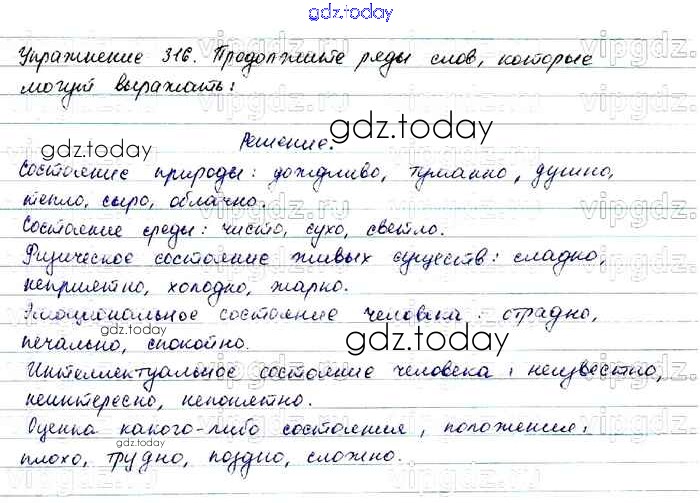 gdz.today
Упражнение 316. Продолжите ряды слов, которые
могут выражать:
Решение.
gdz.today
gdz.today
Состояние природы: дождливо, туманно, душно,
тепло, сыро, облачно.
Состояние среды: чисто, сухо, светло.
Физическое состояние живых существ: сладно,
неприятно, холодно, жарко.
Эмоциональное состояние человека: отрадно,
gdz.today
печально, спокойно.
gdz.today
Интеллектуальное состояние человека: неизвестно,
неинтересно, непонятно.
Оценка какого-либо состояния, положения:
gdz.today
плохо, трудно, поздно, сложно.
vipgdz.ru